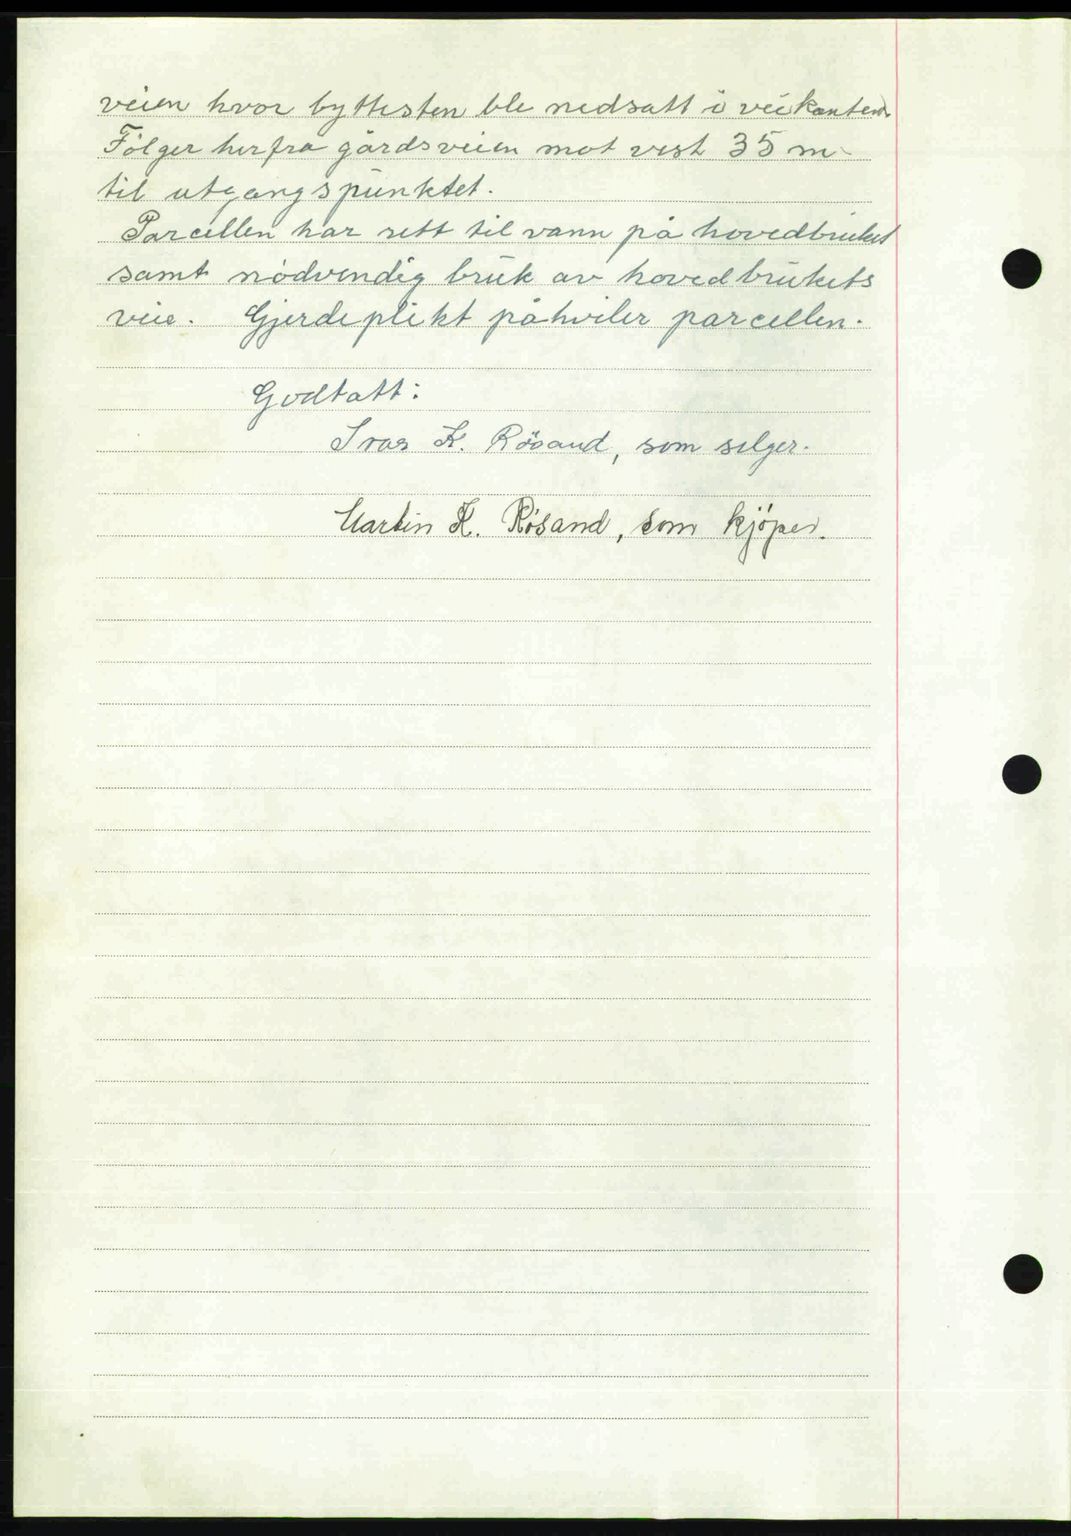 veien hvor byttesten ble nedsatt i veikanten.
Følger herfra gårdsveien mot vest 35 m
til utgangspunktet.
Parcellen har rett til vann på hovedbruket
samt nødvendig bruk av hovedbrukets
veie. Gjerdeplikt påhviler parcellen.
Godtatt:
Ivar K. Røsand, som selger.
Martin K. Røsand, som kjøper.